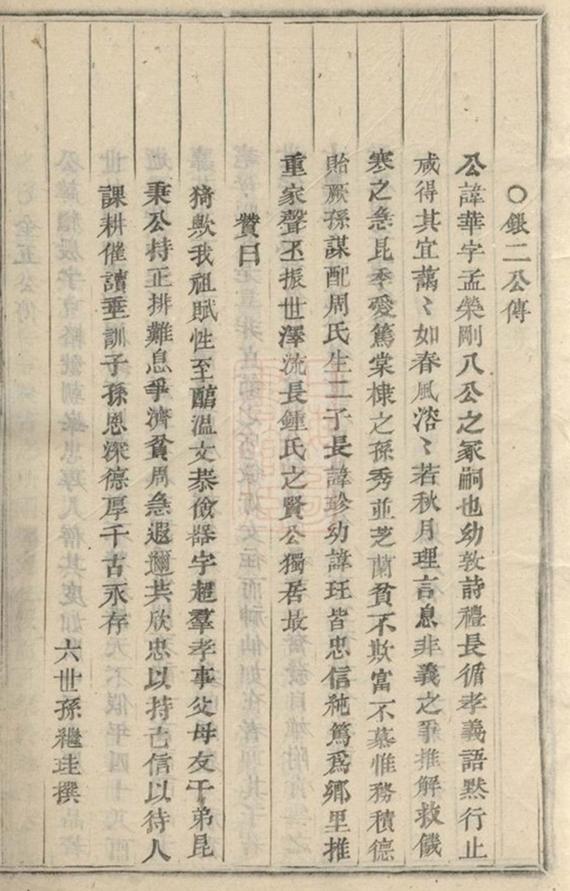 ○銀二公傳
公諱華字孟榮剛八公之冢嗣也幼敦詩禮長循孝義語默行止
咸得其宜藹〻如春風溶〻若秋月理言息非義之爭推解救饑
寒之急昆季愛篤棠棣之孫秀並芝蘭貧不欺富不慕惟務積德
貽厥孫謀配周氏生二子長諱珍幼諱玨皆忠信純篤爲鄉里推
重家聲丕振世澤流長鍾氏之賢公獨居最
贊曰
猗歟我祖賦性至醕溫文恭儉器宇超羣孝事父母友于弟昆
秉公持正排難息爭濟貧周急遐邇共欣忠以持己信以待人
課耕催讀垂訓子孫恩深德厚千古永存
六世孫繼珪撰